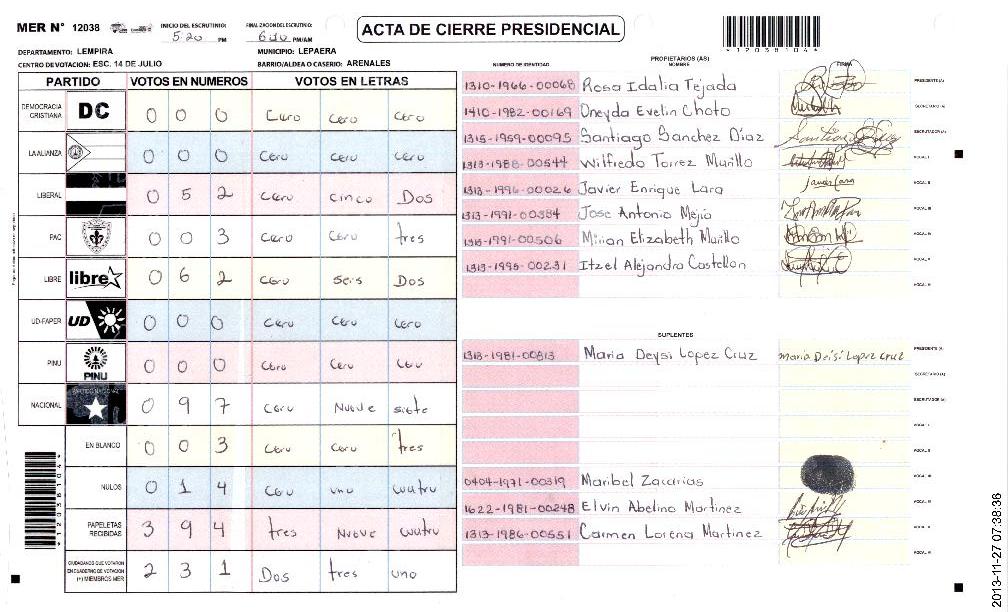 MER N° 12038 INICIO DEL ESCRUTINIO: 5:20 PM FINALIZACION DEL ESCRUTINIO: 6:10 PM/AM
ACTA DE CIERRE PRESIDENCIAL
*12038104*
DEPARTAMENTO: LEMPIRA MUNICIPIO: LEPAERA
CENTRO DE VOTACION: ESC. 14 DE JULIO BARRIO/ALDEA O CASERIO: ARENALES
PARTIDO VOTOS EN NUMEROS VOTOS EN LETRAS
DEMOCRACIA CRISTIANA DC 0 0 0 Cero Cero Cero
LA ALIANZA 0 0 0 Cero Cero Cero
LIBERAL 0 5 2 Cero Cinco Dos
PAC 0 0 3 Cero Cero tres
LIBRE libre 0 6 2 Cero Seis Dos
UD-FAPER UD 0 0 0 Cero Cero Cero
PINU PINU 0 0 0 Cero Cero Cero
NACIONAL PARTIDO NACIONAL 0 9 7 Cero Nueve siete
EN BLANCO 0 0 3 Cero Cero tres
NULOS 0 1 4 Cero uno cuatro
PAPELETAS RECIBIDAS 3 9 4 tres Nueve cuatro
CIUDADANOS QUE VOTARON EN CUADERNO DE VOTACION (+) MIEMBROS MER 2 3 1 Dos tres uno
*12038104*
PROPIETARIOS (AS)
NUMERO DE IDENTIDAD NOMBRE FIRMA
1310-1966-00068 Rosa Idalia Tejada PRESIDENTE (A)
1410-1982-00169 Oneyda Evelin Choto SECRETARIO (A)
1315-1959-00095 Santiago Sanchez Diaz ESCRUTADOR (A)
1313-1988-00544 Wilfredo Torrez Murillo VOCAL I
1313-1996-00026 Javier Enrique Lara Javier Lara VOCAL II
1313-1991-00384 Jose Antonio Mejio VOCAL III
1313-1991-00506 Mirian Elizabeth Murillo VOCAL IV
1313-1995-00231 Itzel Alejandra Castellon VOCAL V
VOCAL VI
SUPLENTES
1313-1981-00813 Maria Deysi Lopez Cruz maria Deisi Lopez cruz PRESIDENTE (A)
SECRETARIO (A)
ESCRUTADOR (A)
VOCAL I
VOCAL II
0404-1971-00319 Maribel Zacarias VOCAL III
1622-1981-00248 Elvin Abelino Martinez VOCAL IV
1313-1986-00551 Carmen Lorena Martinez VOCAL V
VOCAL VI
2013-11-27 07:38:36